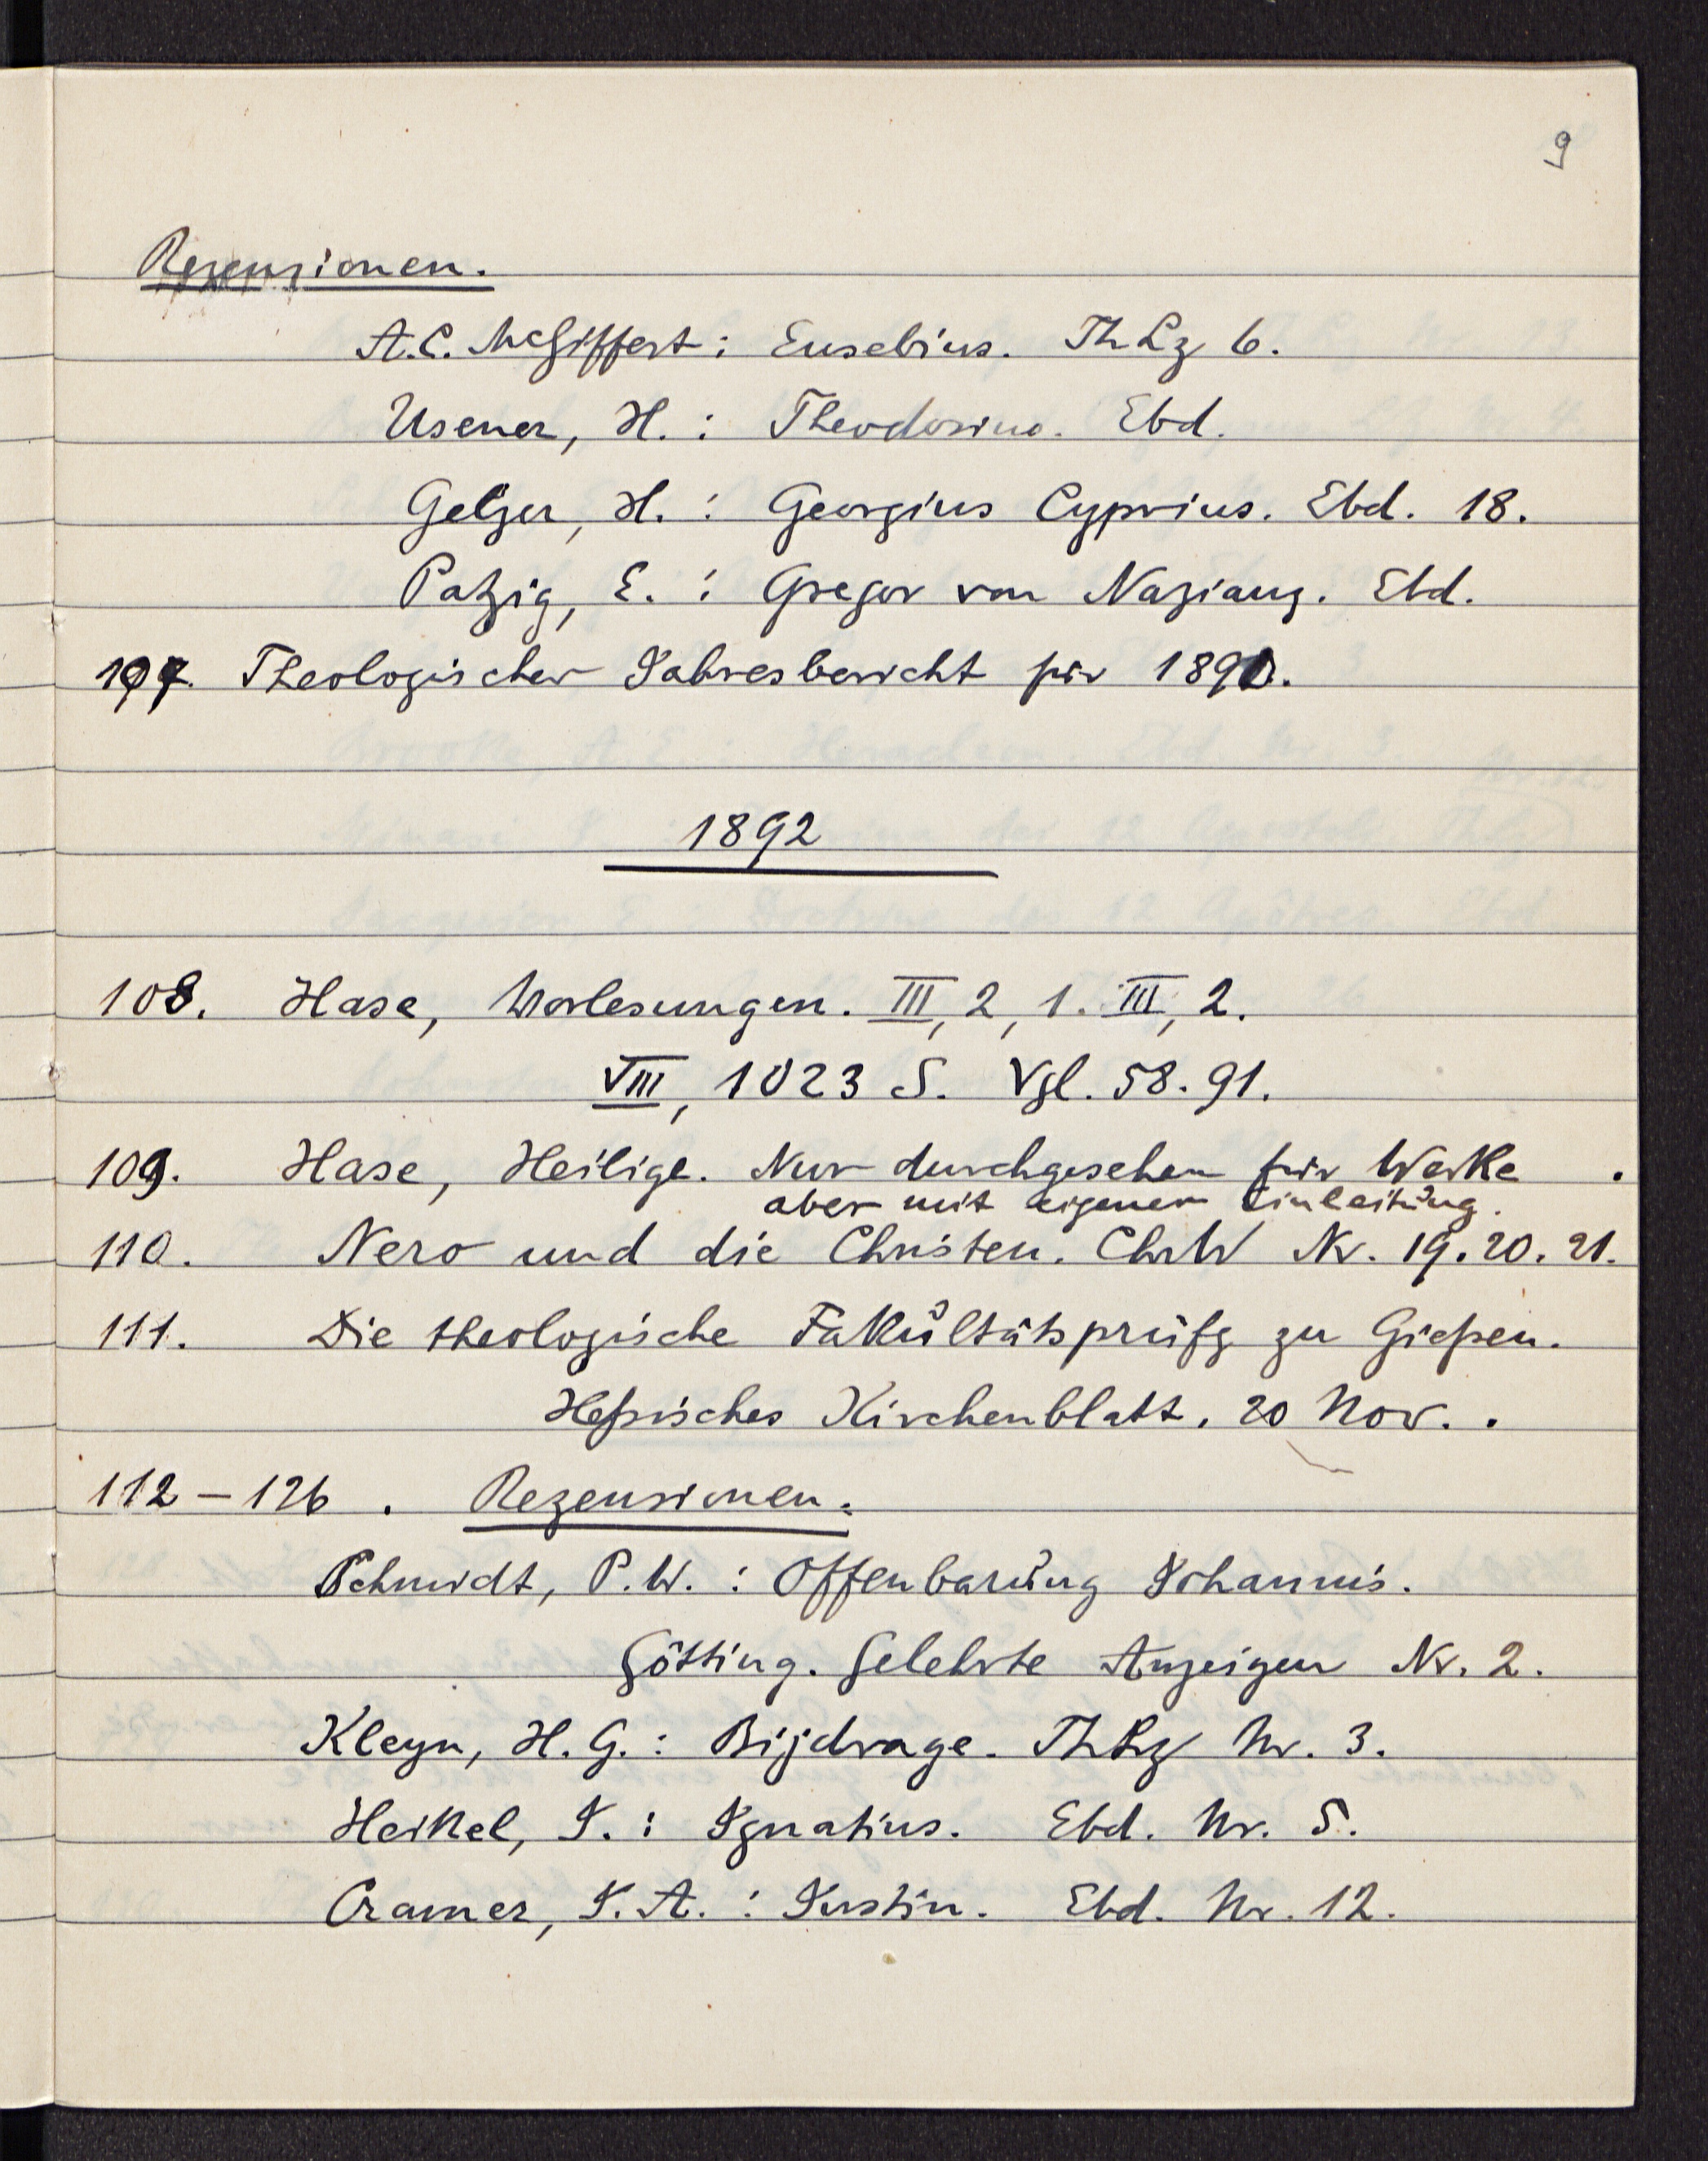 9
Rezensionen.
A.C. McGiffert: Eusebius. ThLz 6.
Usener, H.: Theodosius. Ebd.
Gelzer, H.: Georgius Cyprius. Ebd. 18.
Patzig, E.: Gregor von Nazianz. Ebd.
107. Theologischer Jahresbericht für 1890.
1892
108. Hase, Vorlesungen. III, 2, 1. III, 2.
VIII, 1023 S. Vgl. 58. 91.
109. Hase, Heilige. Nur durchgesehen für Werke.
aber mit eigener Einleitung.
110. Nero und die Christen. ChrW Nr. 19. 20. 21.
111. Die theologische Fakultätsprüfg zu Gießen.
Heßisches Kirchenblatt. 20 Nov..
112-126. Rezensionen.
Schmidt, P.W.: Offenbarung Johannis.
Götting. Gelehrte Anzeigen Nr. 2.
Kleyn, H.G.: Bijdrage. ThLz Nr. 3.
Heikel, I.: Ignatius. Ebd. Nr. 5.
Cramer, J.A.: Justin. Ebd. Nr. 12.